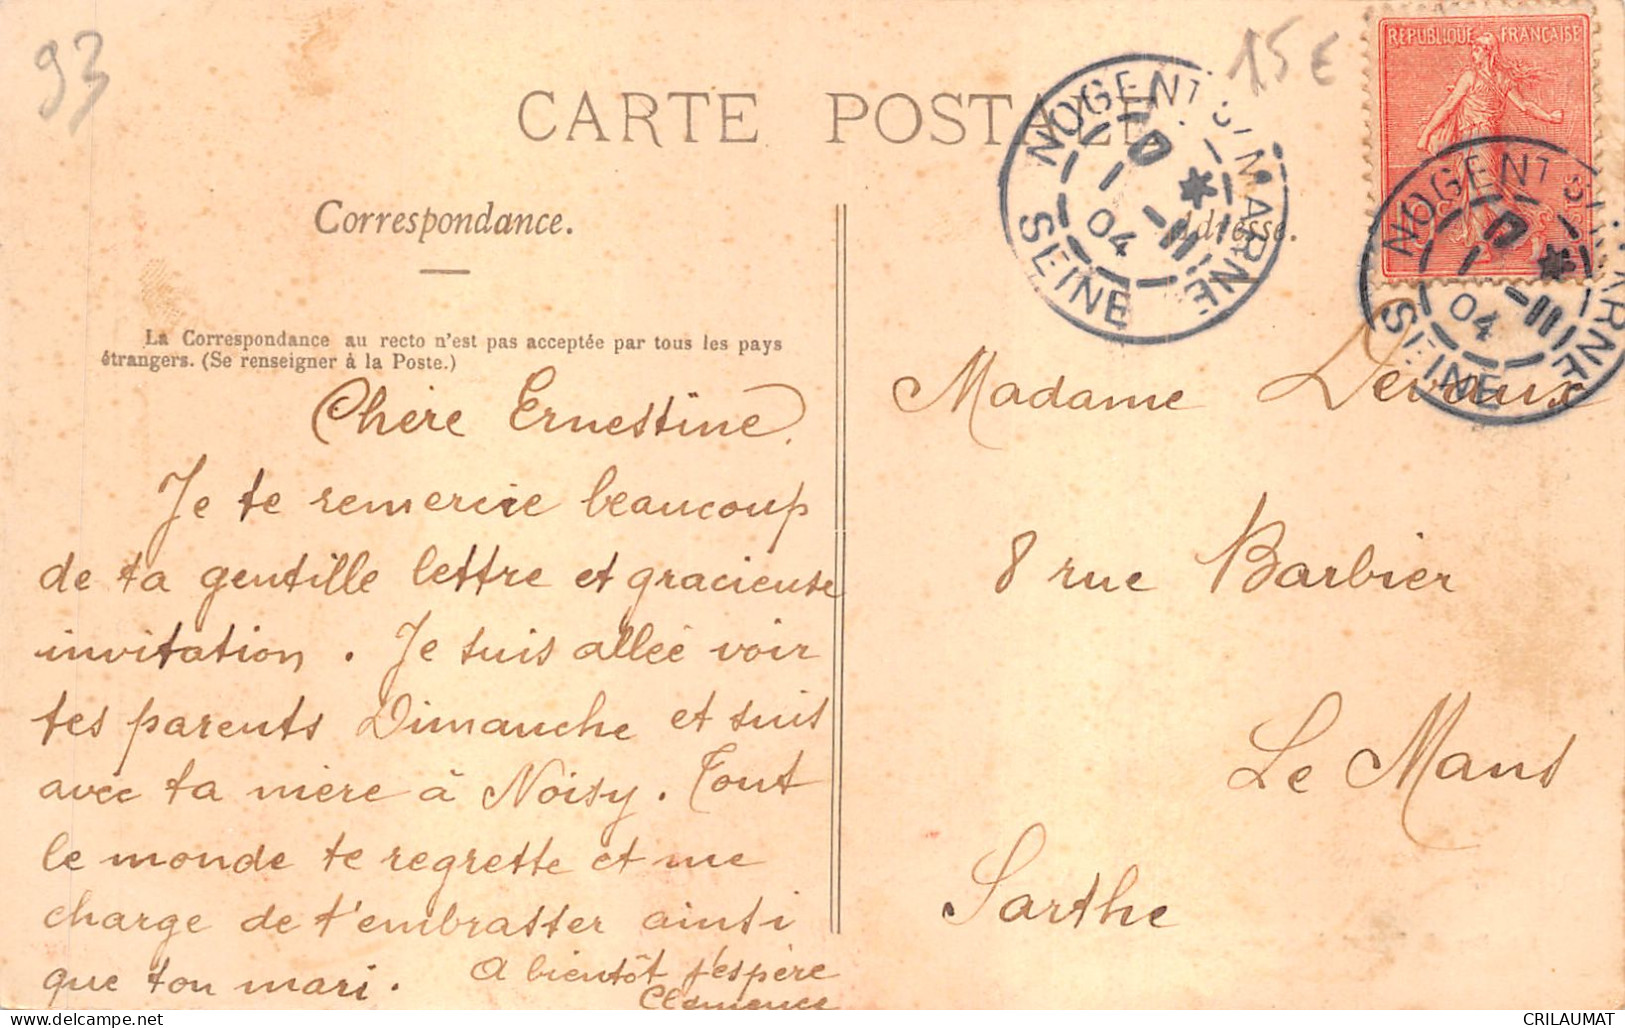 93
15€
CARTE POSTALE
REPUBLIQUE FRANÇAISE
NOGENT S/ MARNE
1
04
SEINE
NOGENT S/ MARNE
1
04
SEINE
Correspondance.
Adresse.
La Correspondance au recto n'est pas acceptée par tous les pays
étrangers. (Se renseigner à la Poste.)
Chère Ernestine.
Je te remercie beaucoup
de ta gentille lettre et gracieuse
invitation. Je suis allée voir
tes parents Dimanche et suis
avec ta mère à Noisy. Tout
le monde te regrette et me
charge de t'embrasser ainsi
que ton mari. A bientôt j'espère
Clémence
Madame Devaux
8 rue Barbier
Le Mans
Sarthe
CRILAUMAT